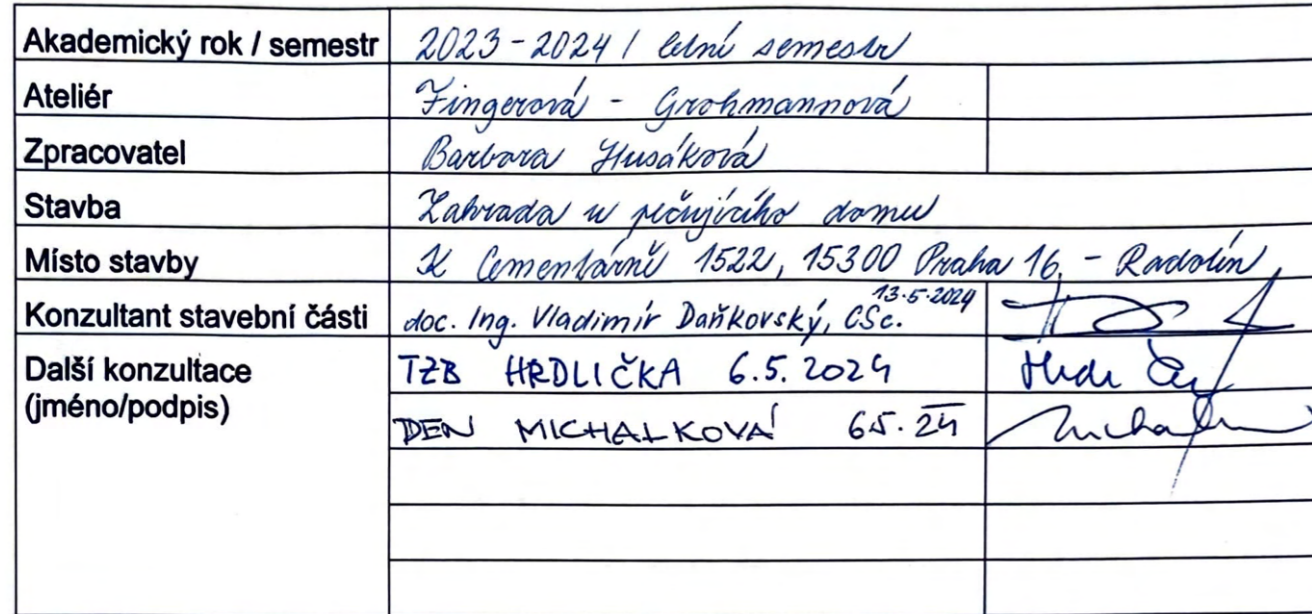 Akademický rok / semestr 2023-2024 / letní semestr
Ateliér Fingerová - Grohmannová
Zpracovatel Barbora Husáková
Stavba Zahrada u pečujícího domu
Místo stavby K Cementárně 1522, 15300 Praha 16, - Radotín
Konzultant stavební části doc. Ing. Vladimír Daňkovský, CSc. 13.5.2024
Další konzultace TZB HRDLIČKA 6.5.2024
(jméno/podpis) DEN MICHALKOVÁ 6.5.24